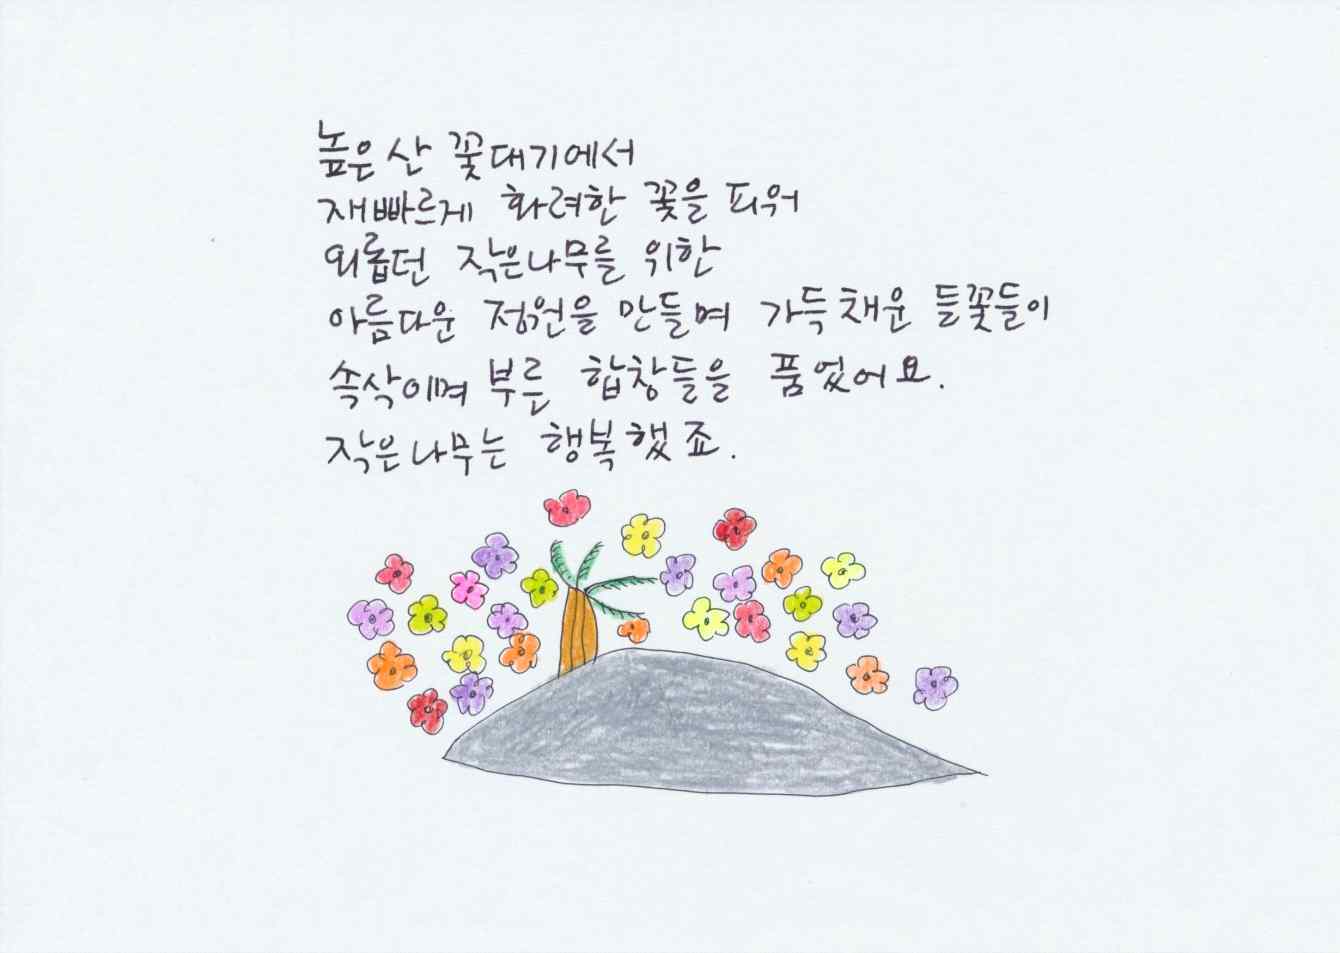 높은 산 꽃대기에서
재빠르게 화려한 꽃을 피워
외롭던 작은나무를 위한
아름다운 정원을 만들며 가득 채운 들꽃들이
속삭이며 부른 합창들을 품었어요.
작은나무는 행복했죠.